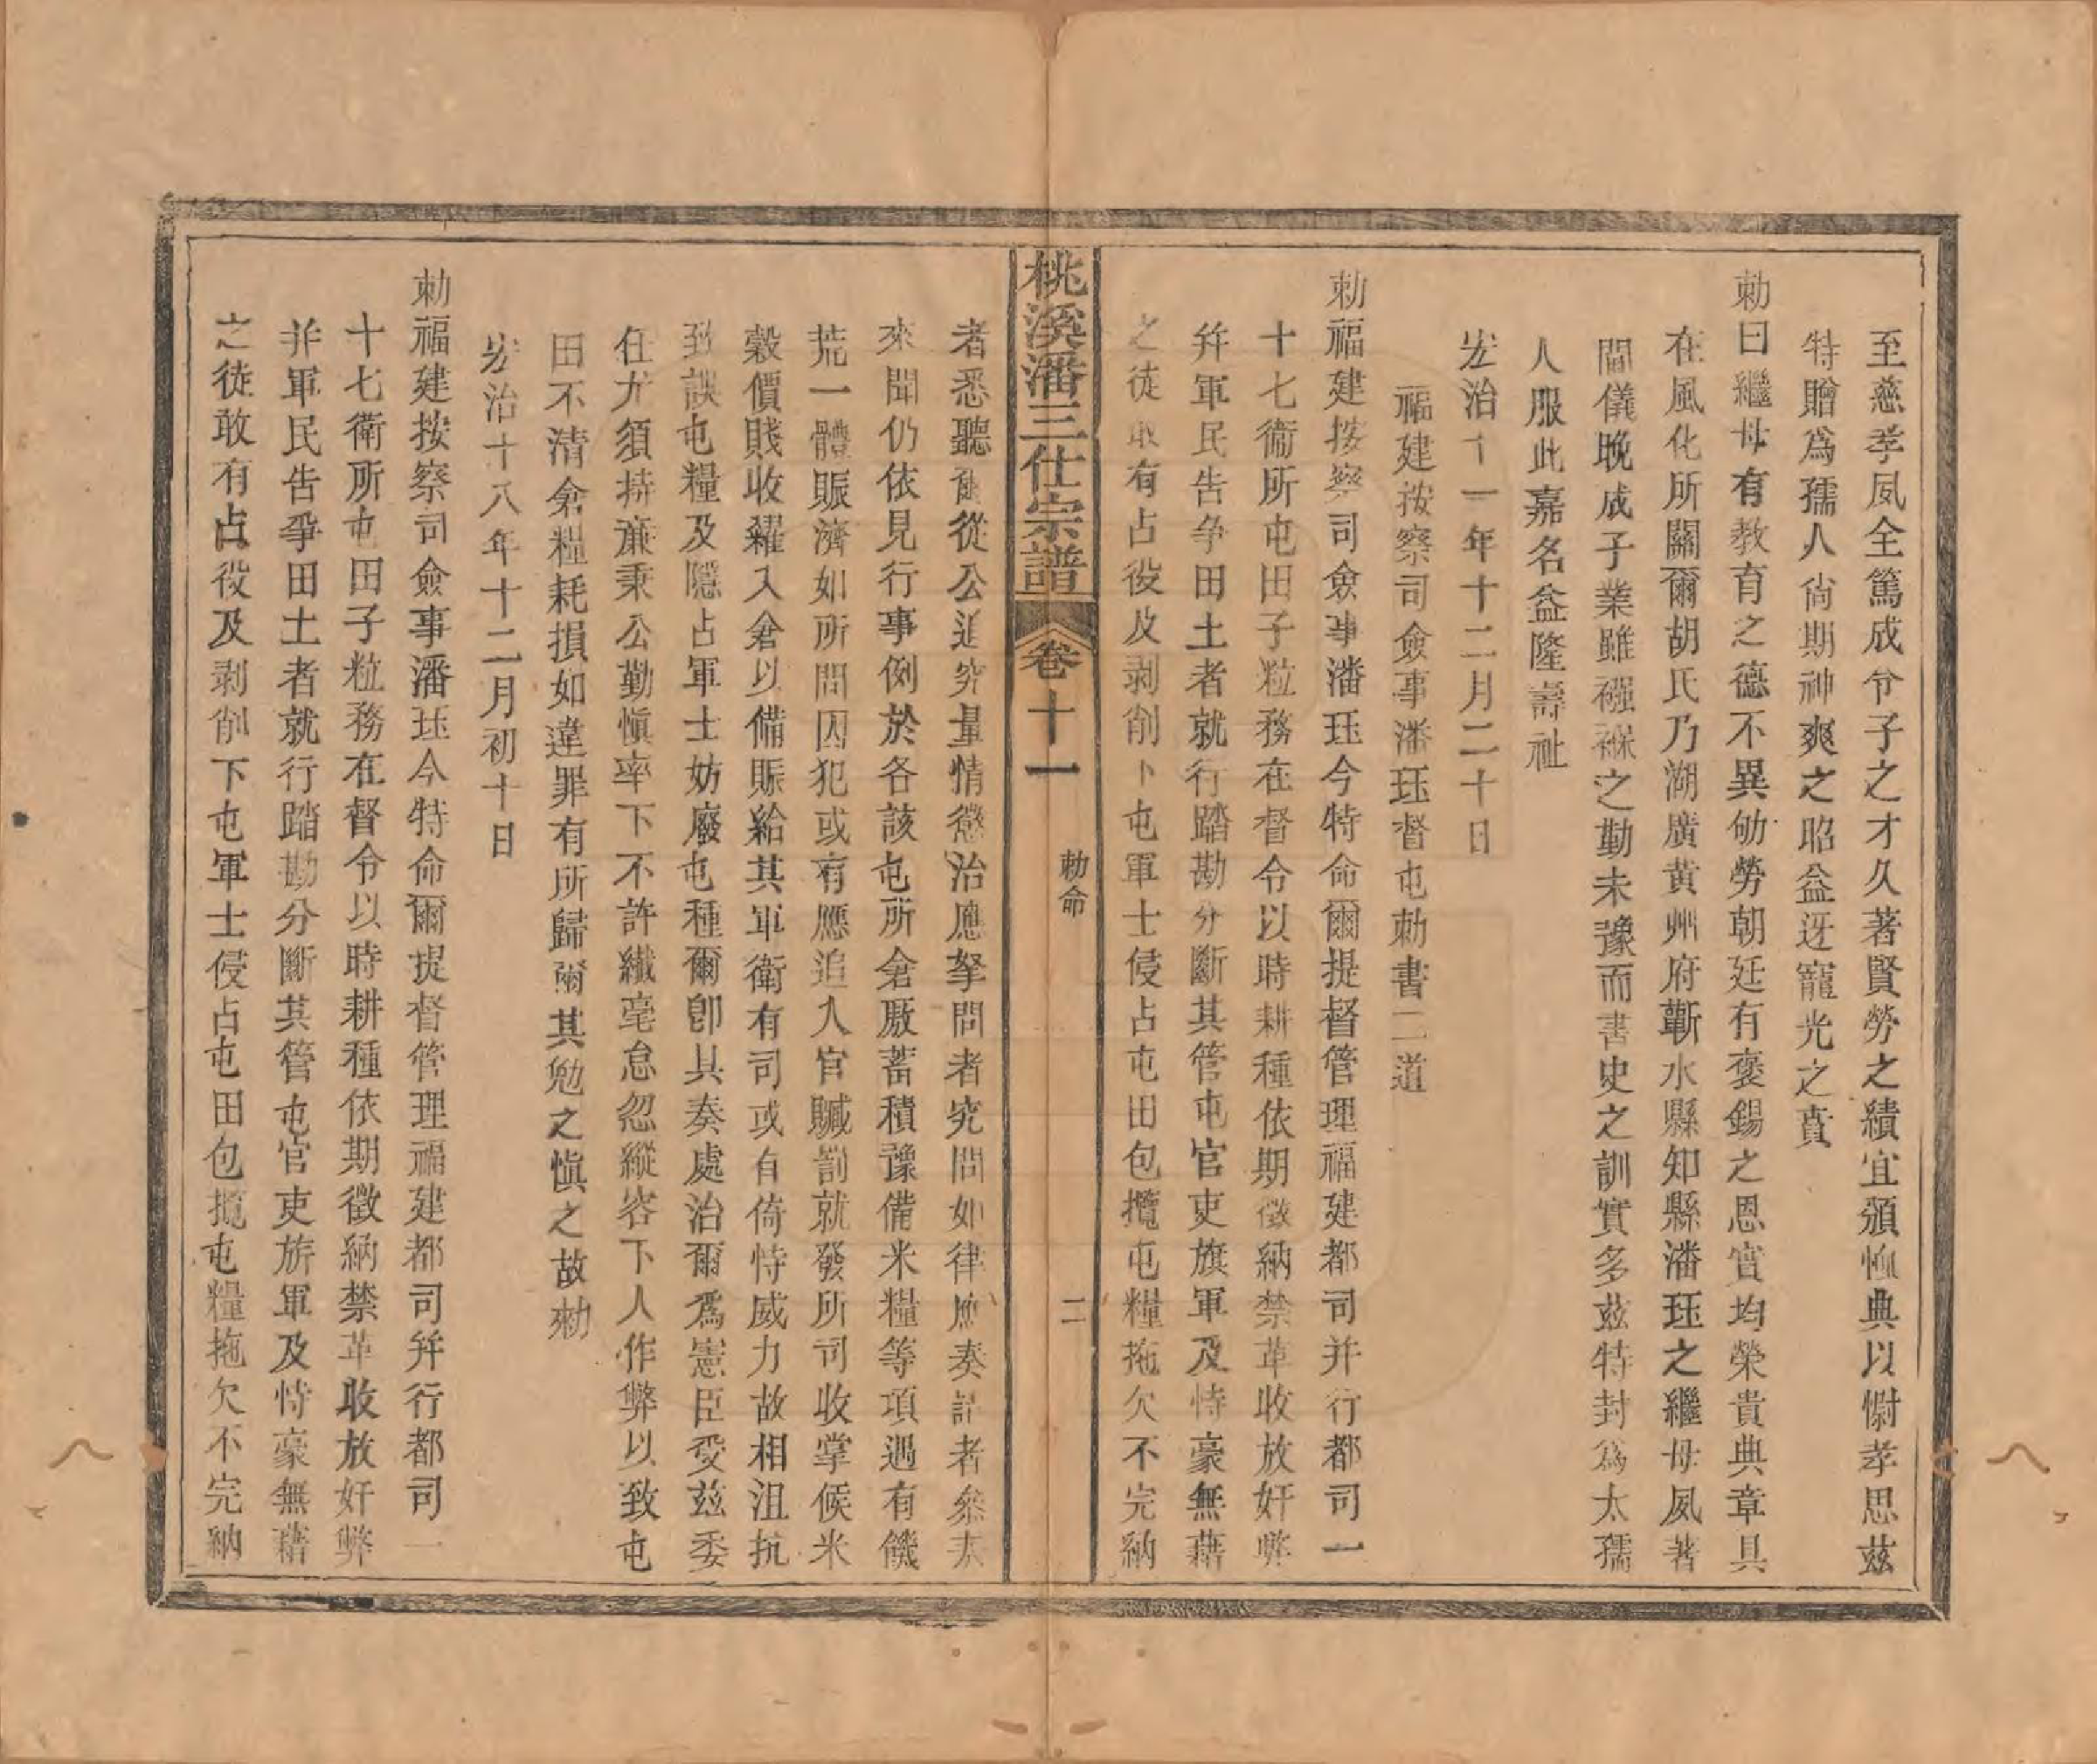 至慈孝夙全篤成令子之才久著賢勞之績宜頒恤典以慰孝思茲
特贈爲孺人尙期神爽之昭益迓寵光之賁
勅曰繼母有教育之德不異劬勞朝廷有褒錫之恩實均榮貴典章具
在風化所關爾胡氏乃湖廣黃州府蘄水縣知縣潘珏之繼母夙著
閫儀晚成子業雖襁褓之勤未豫而書史之訓實多茲特封爲太孺
人服此嘉名益隆壽祉
宏治十一年十二月二十日
福建按察司僉事潘珏督屯勅書二道
勅福建按察司僉事潘珏今特命爾提督管理福建都司并行都司一
十七衞所屯田子粒務在督令以時耕種依期徵納禁革收放奸弊
幷軍民告爭田土者就行踏勘分斷其管屯官吏旗軍及恃豪無藉
之徒敢有占役及剥削下屯軍士侵占屯田包攬屯糧拖欠不完納
桃溪潘三仕宗譜 卷十一 勅命 二
者悉聽爾從公追究量情懲治應拏問者究問如律應奏請者叅奏
來聞仍依見行事例於各該屯所倉厫蓄積豫備米糧等項遇有饑
荒一體賑濟如所問囚犯或有應追入官贓罰就發所司收掌候米
穀價賤收糴入倉以備賑給其軍衛有司或有倚恃威力故相沮抗
致誤屯糧及隱占軍士妨廢屯種爾卽具奏處治爾爲憲臣受茲委
任尤須持廉秉公勤愼率下不許纖毫怠忽縱容下人作弊以致屯
田不清倉糧耗損如違罪有所歸爾其勉之愼之故勅
宏治十八年十二月初十日
勅福建按察司僉事潘珏今特命爾提督管理福建都司幷行都司一
十七衛所屯田子粒務在督令以時耕種依期徵納禁革收放奸弊
并軍民告爭田土者就行踏勘分斷其管屯官吏旂軍及恃豪無藉
之徒敢有占役及剥削下屯軍士侵占屯田包攬屯糧拖欠不完納